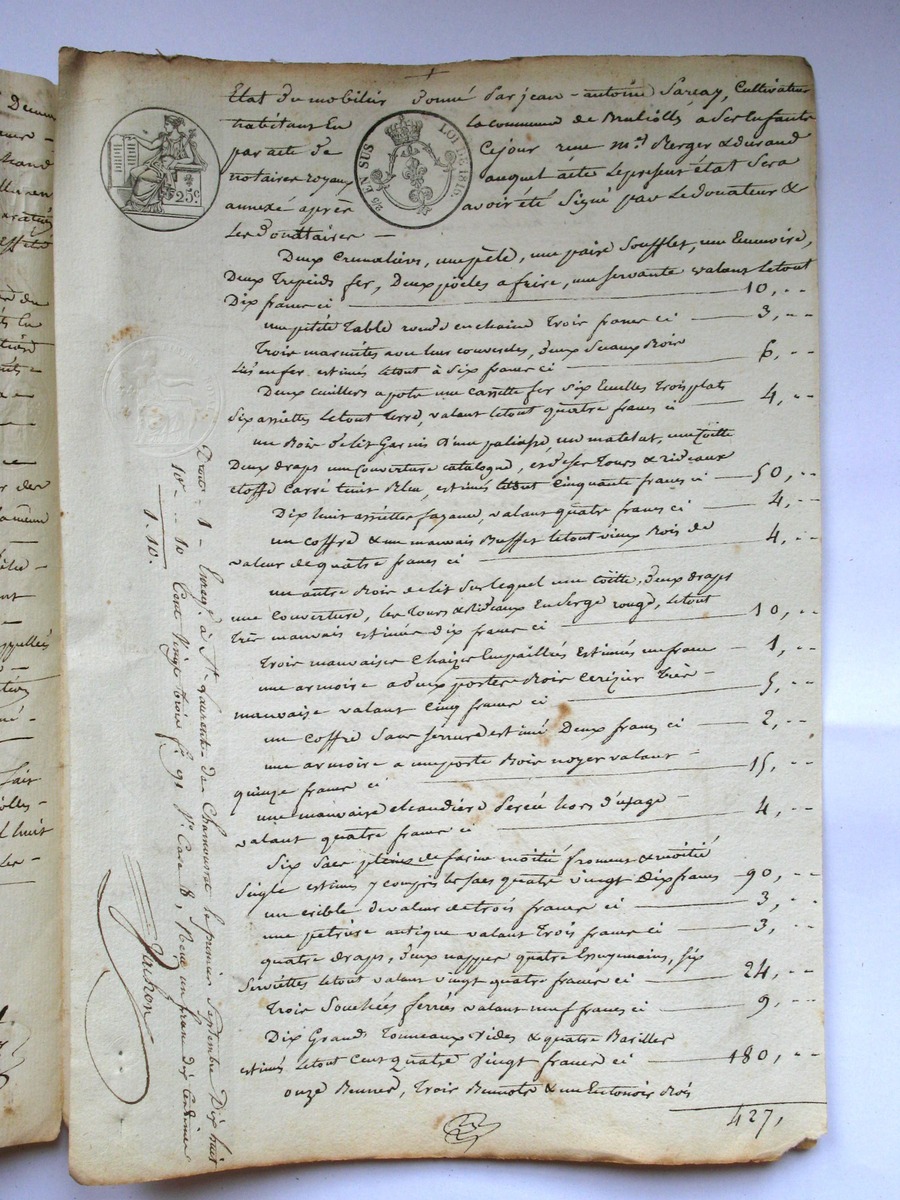 Etat du mobilier donné par jean-antoine Sarcay, Cultivateur
habitant en la commune de Brullolles, a ses enfants
par acte de cejour reçu md. Berger & durand
notaires royaux auquel acte le present état Sera
annexé après avoir été Signé par le Donateur &
Les Donataires —
Deux Cremalières, une pèle, une paire Soufflet, une
Deux Trepieds fer, Deux poëles a frire, une servante valant letout
Dix francs ci — 10, --
une petite Table ronde enchaine Trois francs ci — 3, --
Trois marmites avec leurs couvercles, deux Seaux Bois
liés en fer estimés letout à Six francs ci — 6, --
Deux cuillers a pots une cassette fer Six Ecuelles Trois plats
Six assiettes letout terre, valant letout quatre francs ci — 4, --
un Bois de lit Garni d'une paliasse, un matelat, une Coëtte
Deux draps une Couverture catalogne, et des Tours & rideaux
etoffe Carré bleu, estimés letout Cinquante francs ci — 50, --
Dix huit assiettes fayance, valant quatre francs ci — 4, --
un coffre & un mauvais Buffet letout vieux Bois de
valeur de quatre francs ci — 4, --
un autre Bois de lit Sur lequel une Coëtte, deux draps
une Couverture, les Tours & Rideaux En Serge rouge, letout
Très mauvais estimés dix francs ci — 10, --
Trois mauvaises Chaises Empaillées Estimées un franc — 1, --
une armoire a deux portes Bois Cerizier Très —
mauvaise valant Cinq francs ci — 5, --
un coffre Sans Serrure estimé Deux francs ci — 2, --
une armoire a une porte Bois noyer valant —
quinze francs ci — 15, --
une mauvaise chaudière Percée hors d'usage —
valant quatre francs ci — 4, --
Six Sacs pleins de farine moitié froment & moitié
Seigle estimés y compris les Sacs quatre vingt Dix francs — 90, --
un crible de valeur de trois francs ci — 3, --
une pètrise antique valant Trois francs ci — 3, --
quatre draps, deux nappes quatre Essuyemains, Six
Serviettes letout valant vingt quatre francs ci — 24, --
Trois Souchées ferrées valant neuf francs ci — 9, --
Dix Grands Tonneaux vides & quatre Barilles
estimés letout Cent quatre vingt francs ci — 180, --
onze Bennes, Trois Bennots & un Entonoir Bois
427,
25c
25c EN SUS
LOI DE 1816
Enregé. à St. Laurent de Chamousset le premier Septembre Dix huit
Cent Vingt trois fo. 91 vo. Case 8, Reçu un franc dix Centimes
Droits — 1 —
10e — 10
1. 10.
Vachon